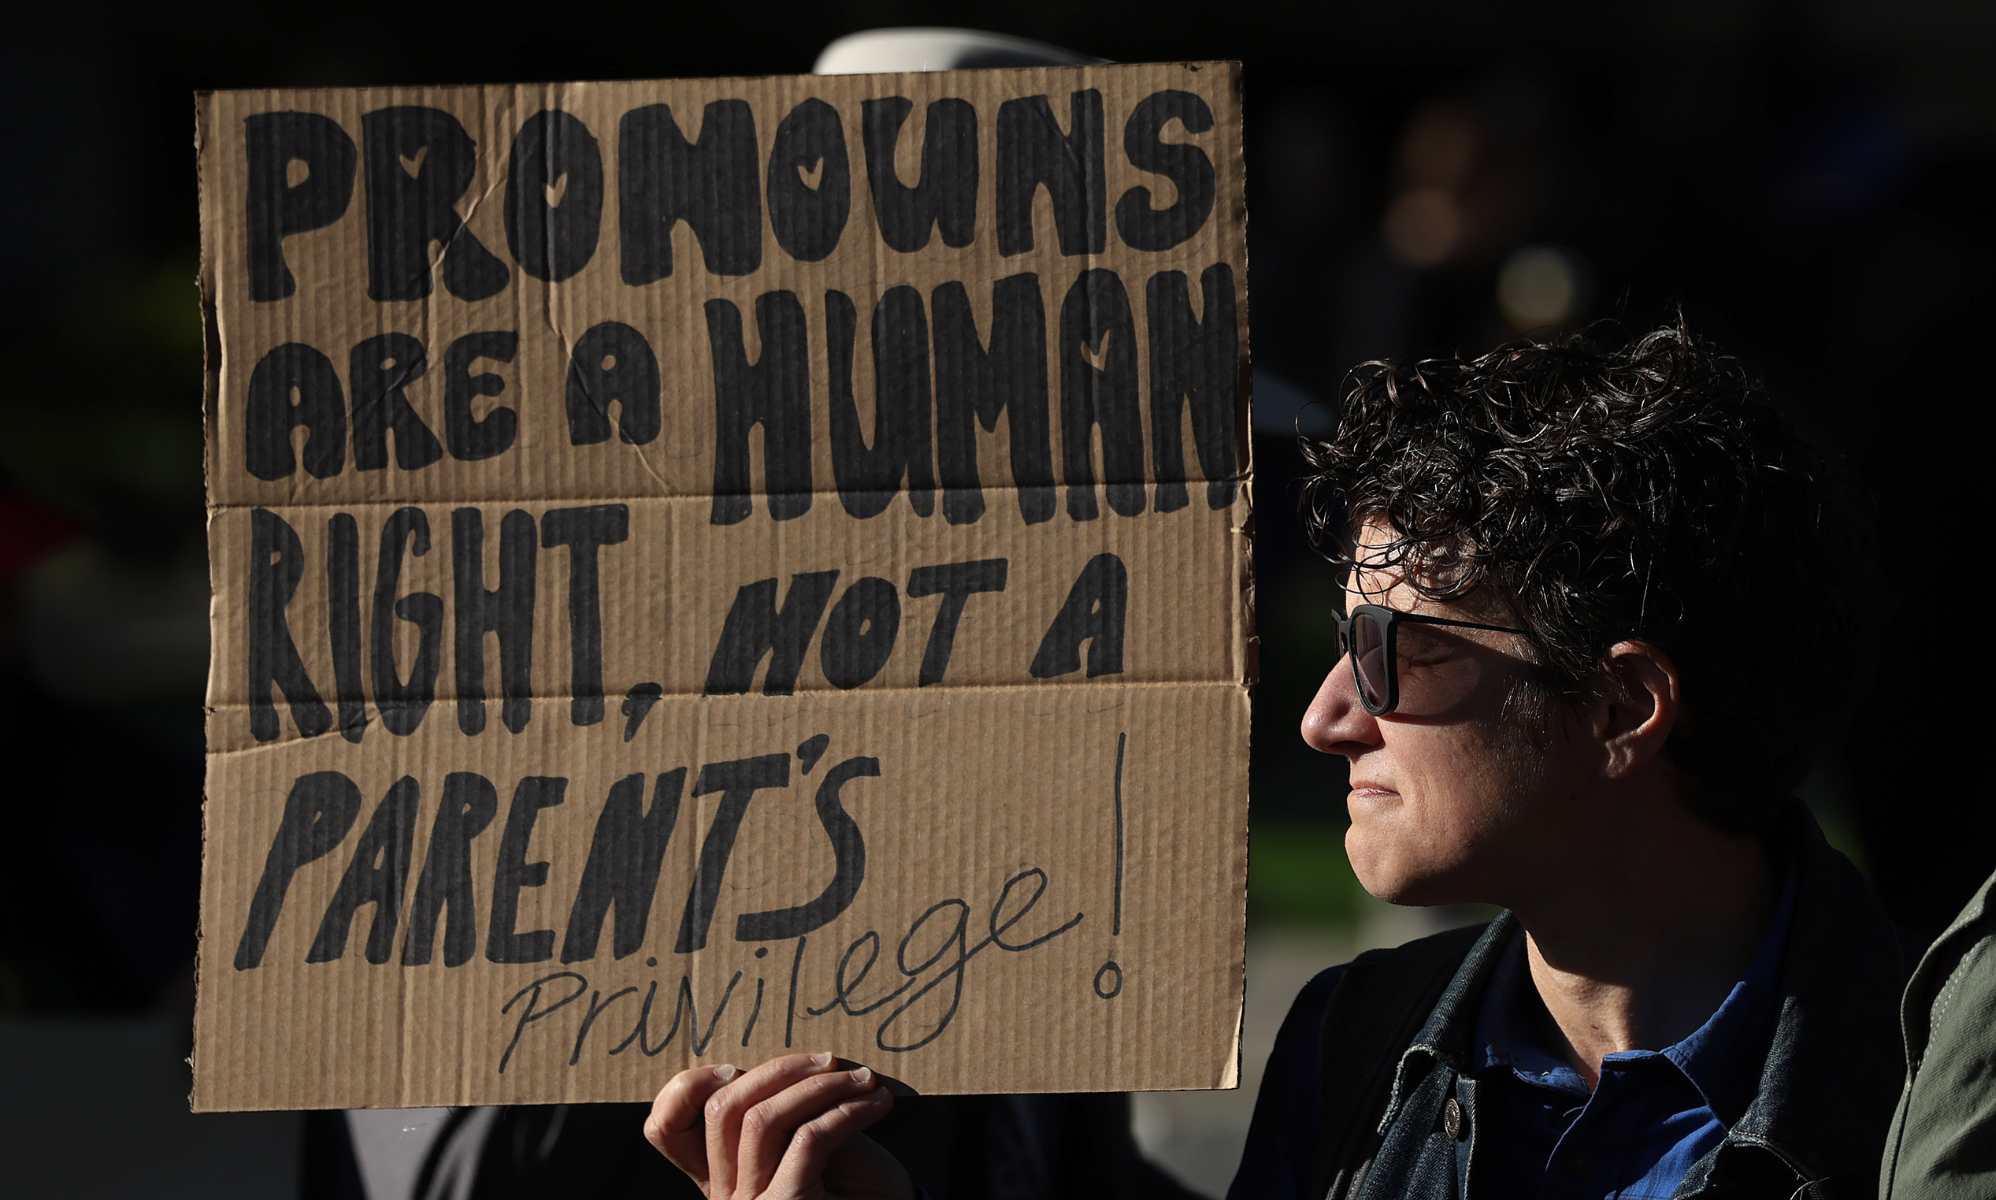 PRONOUNS
ARE A HUMAN
RIGHT, NOT A
PARENT'S
Privilege!